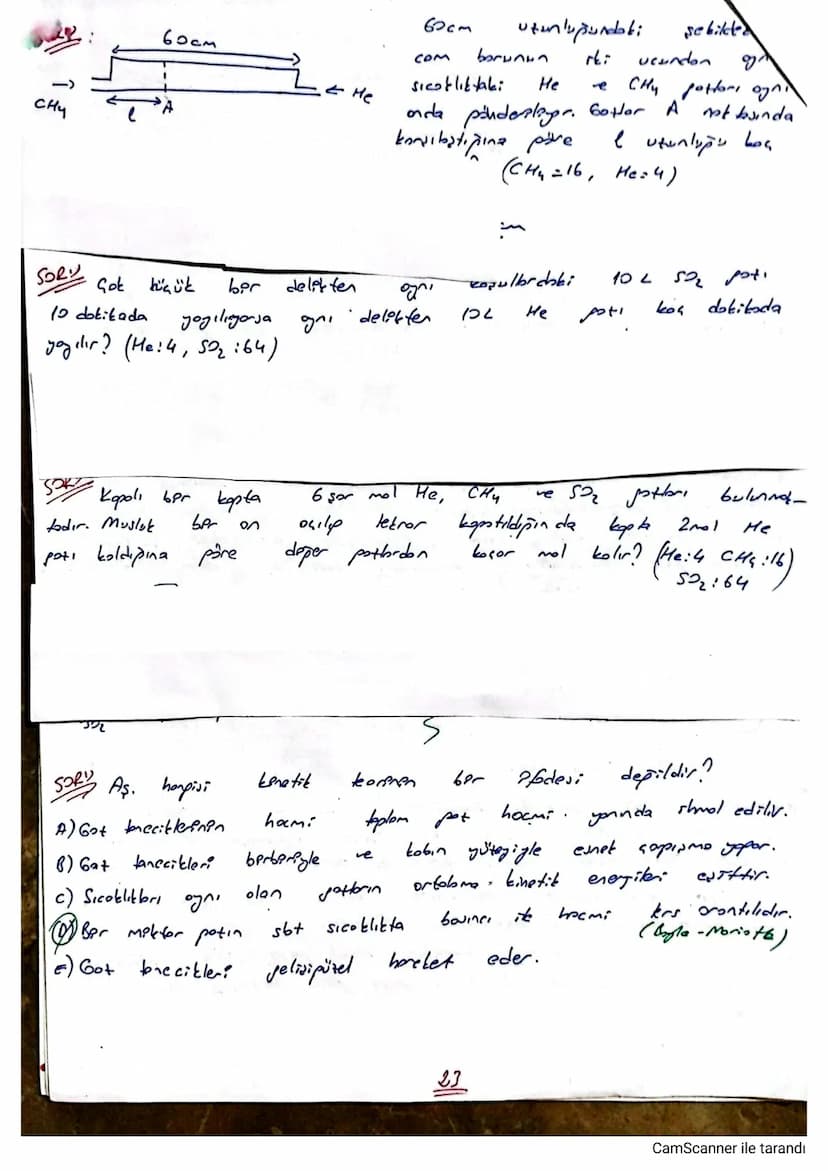 SORU:
60cm
CH4
l
A
He
60cm uzunluğundaki şekildeki
cam borunun iki ucundan aynı
sıcaklıktaki He ve CH4 gazları aynı
anda gönderiliyor. Gazlar A noktasında
karşılaştığına göre l uzunluğu kaç
(CH4=16, He=4)
SORU Çok küçük bir delikten aynı koşullardaki 10 L SO2 gazı
10 dakikada yayılıyorsa aynı delikten 10L He gazı kaç dakikada
yayılır? (He:4, SO2:64)
SORU Kapalı bir kapta 6şar mol He, CH4 ve SO2 gazları bulunmak-
tadır. Musluk bir an açılıp tekrar kapatıldığında kapta 2mol He
gazı kaldığına göre diğer gazlardan kaçar mol kalır? (He:4 CH4:16)
SO2:64
SO2
S
SORU Aş. hangisi kinetik kuramın bir ifadesi değildir?
A) Gaz taneciklerinin hacmi toplam gaz hacmi yanında ihmal edilir.
B) Gaz tanecikleri birbiriyle ve kabın yüzeyiyle esnek çarpışma yapar.
C) Sıcaklıkları aynı olan gazların ortalama kinetik enerjileri eşittir.
D) Bir miktar gazın sbt sıcaklıkta basıncı ile hacmi ters orantılıdır.
(Boyle-Mariotte)
E) Gaz tanecikleri gelişigüzel hareket eder.
23
CamScanner ile tarandı